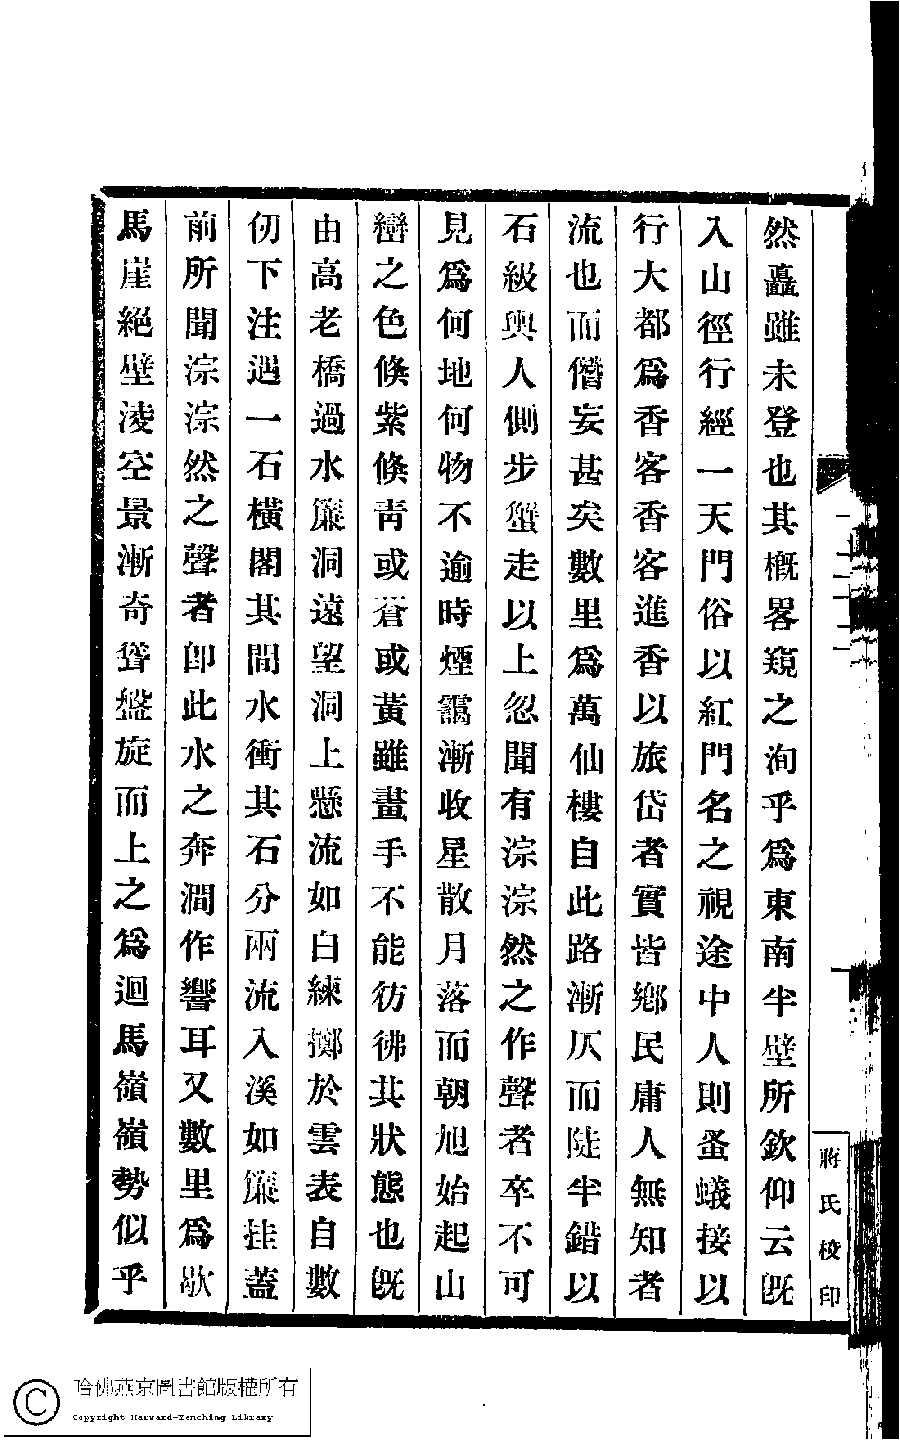 然矗雖未登也其概畧窺之洵乎爲東南半壁所欽仰云旣
入山徑行經一天門俗以紅門名之視途中人則蚤蟻接以
行大都爲香客香客進香以旅岱者實皆鄉民庸人無知者
流也而僭妄甚矣數里爲萬仙樓自此路漸仄而陡半錯以
石級輿人側步蟹走以上忽聞有淙淙然之作聲者卒不可
見爲何地何物不逾時煙靄漸收星散月落而朝旭始起山
巒之色倏紫倏靑或蒼或黃雖畫手不能彷彿其狀態也旣
由高老橋過水簾洞遠望洞上懸流如白練擲於雲表自數
仞下注遇一石橫閣其間水衝其石分兩流入溪如簾挂蓋
前所聞淙淙然之聲者卽此水之奔澗作響耳又數里爲歇
馬崖絕壁凌空景漸奇聳盤旋而上之爲迴馬嶺嶺勢似乎
十二
蔣氏校印
哈佛燕京圖書館版權所有
Copyright Harvard-Yenching Library